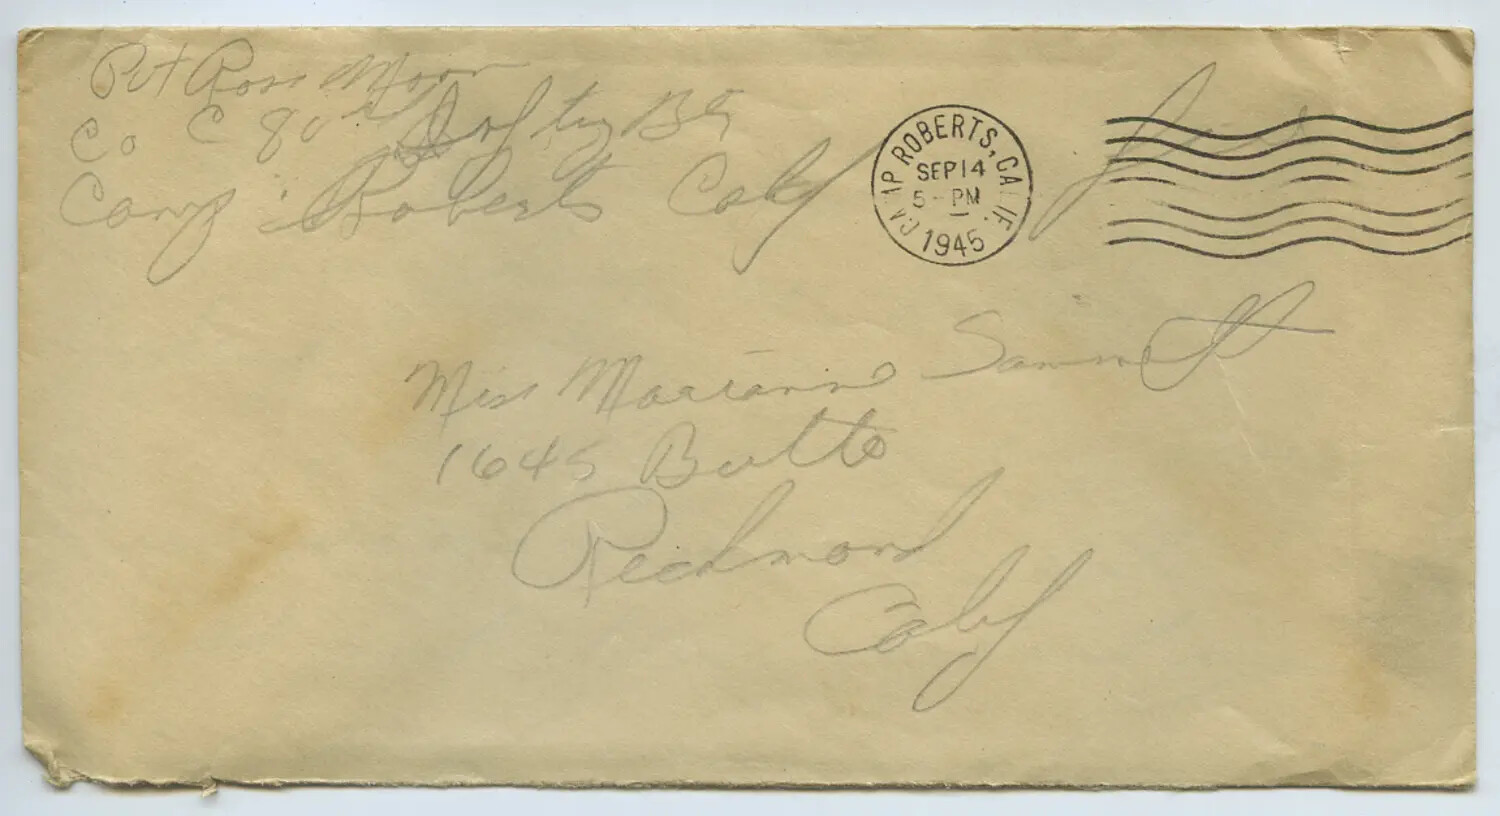 Pvt Ross Moon
Co C 80th Inftry Bn
Camp Roberts Calif
CAMP ROBERTS, CALIF.
SEP 14
5 - PM
1945
Free
Miss Marianne Sammett
1645 Butte
Richmond
Calif